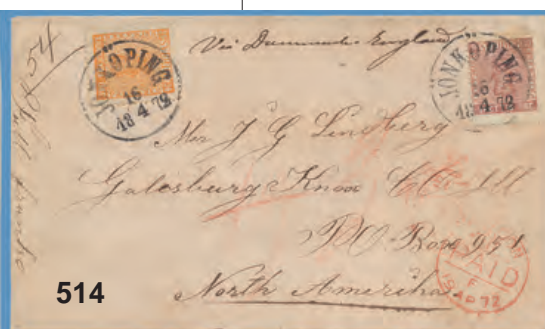 Via Danmark England
JÖNKÖPING
16
18 4 72
JÖNKÖPING
16
18 4 72
54
Mr J G Lindberg
Galesburg Knox Co Ill
PO Box 951
North Amerika
PAID
AP 72
514